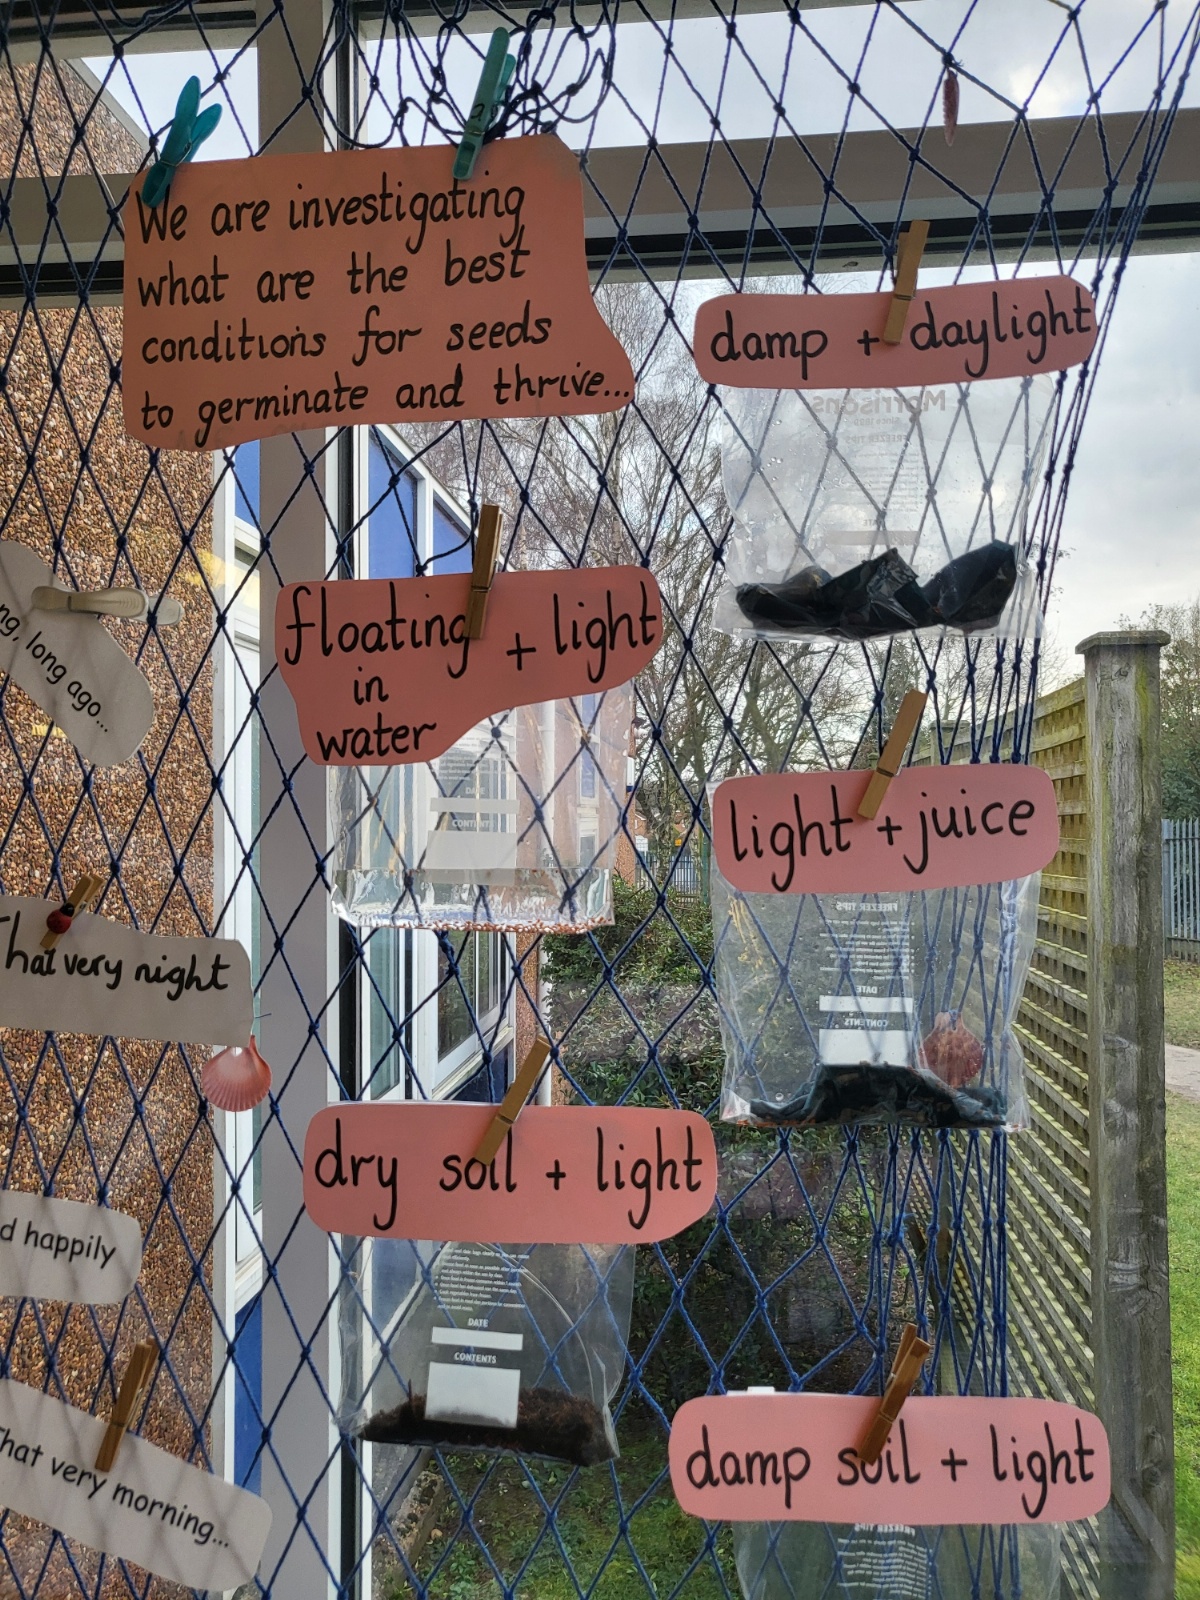 We are investigating
what are the best
conditions for seeds
to germinate and thrive...
damp + daylight
Morrisons
Since 1899
FREEZER TIPS
DATE
floating + light
in
water
DATE
CONTENTS
light + juice
FREEZER TIPS
DATE
CONTENTS
dry soil + light
DATE
CONTENTS
damp soil + light
FREEZER TIPS
long ago...
That very night
happily
That very morning...